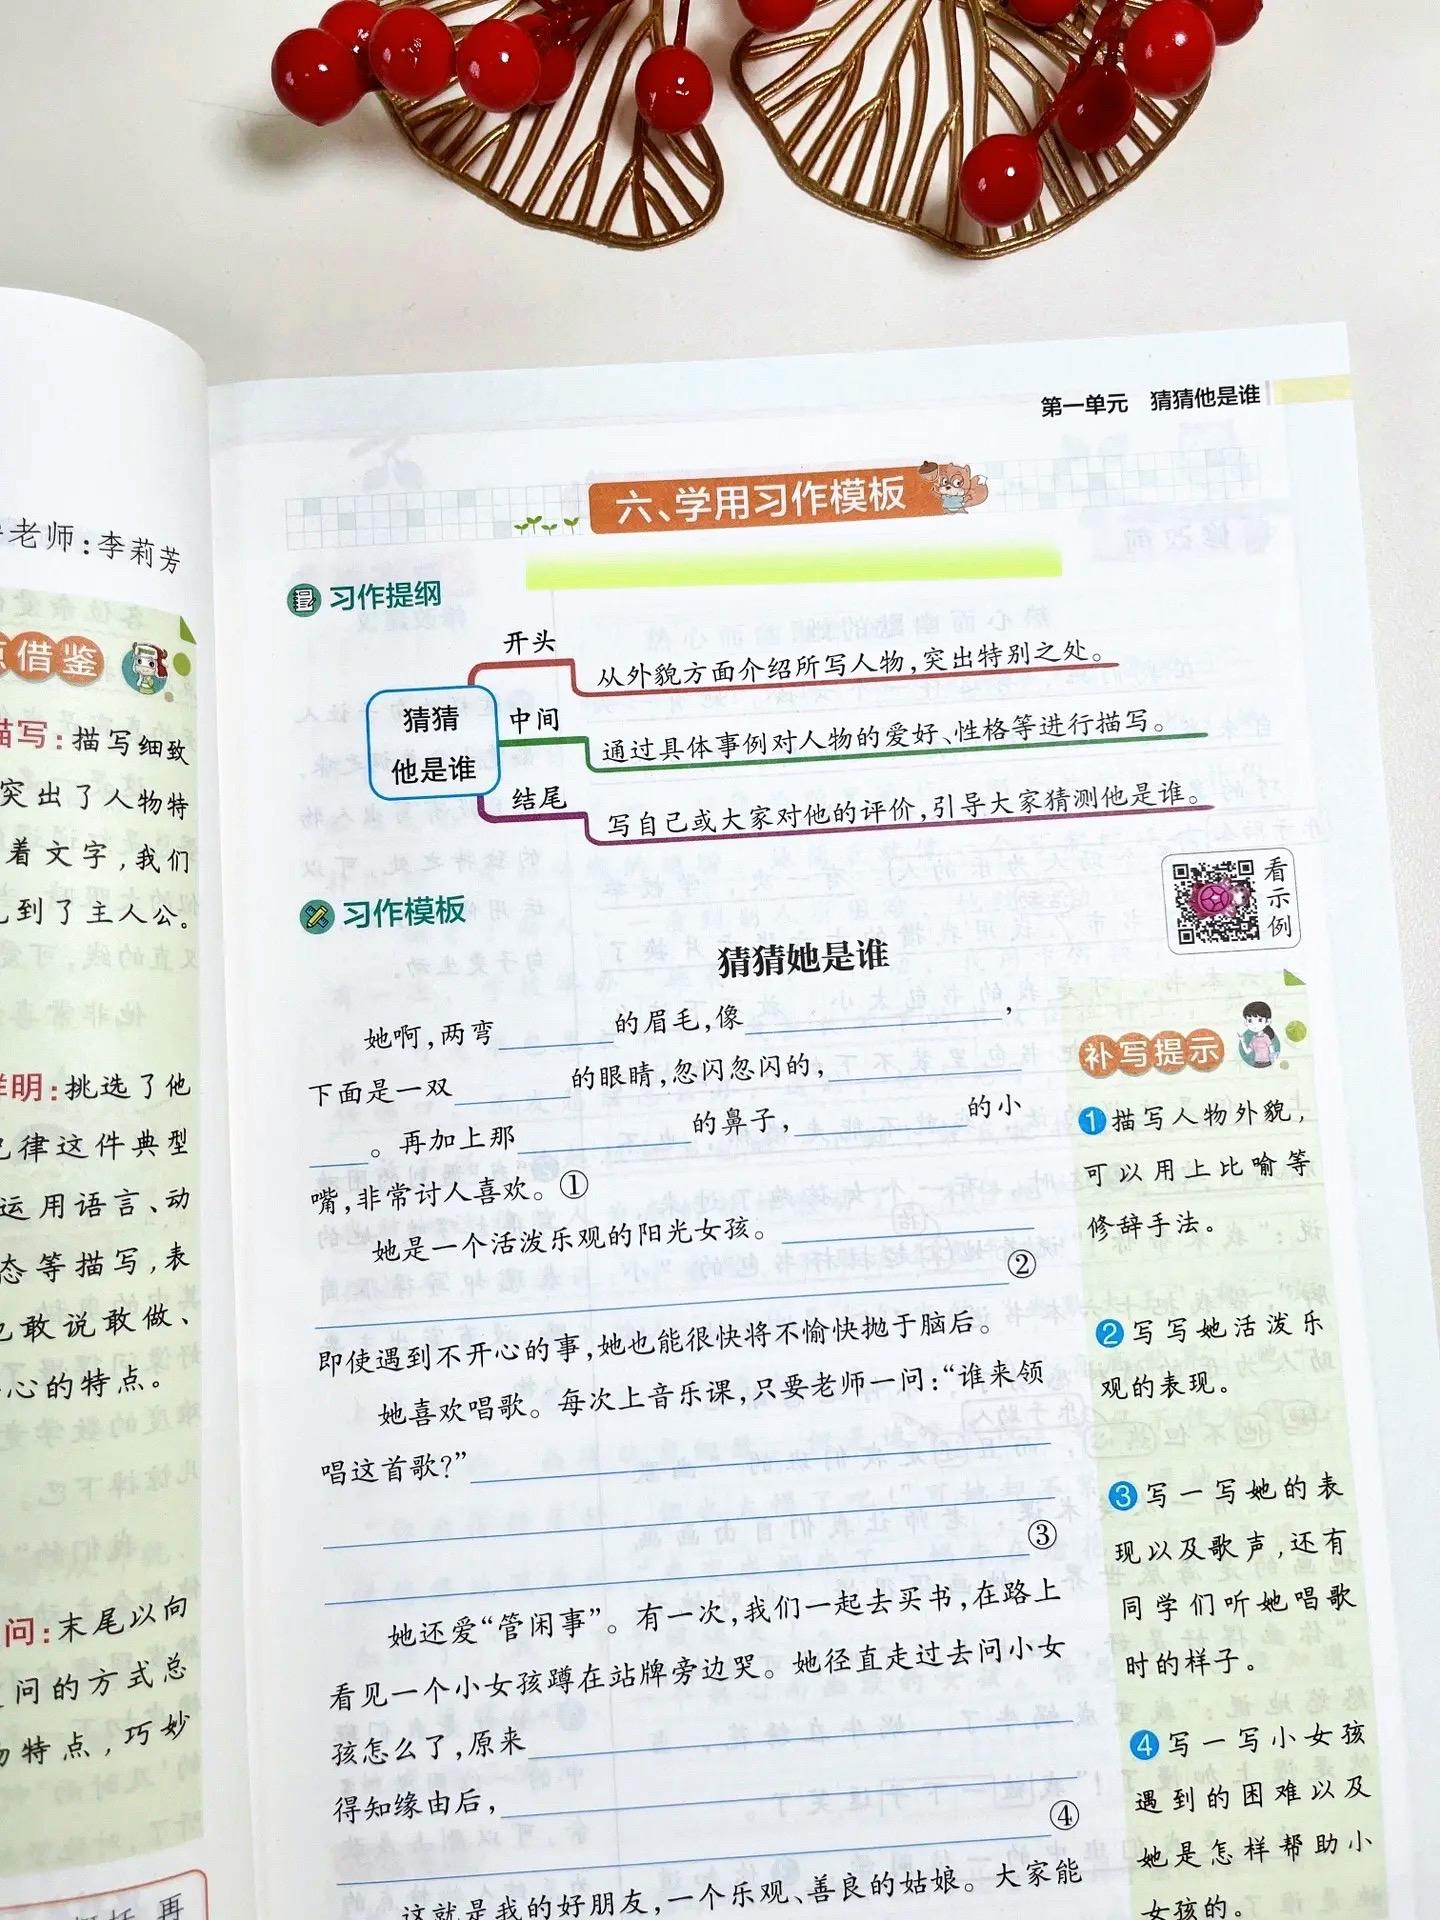 老师:李莉芳
借鉴
描写:描写细致
突出了人物特
着文字,我们
到了主人公。
鲜明:挑选了他
纪律这件典型
运用语言、动
态等描写,表
敢说敢做、
心的特点。
问:末尾以向
问的方式总
特点,巧妙
再
第一单元 猜猜他是谁
六、学用习作模板
习作提纲
猜猜
他是谁
开头
从外貌方面介绍所写人物,突出特别之处。
中间
通过具体事例对人物的爱好、性格等进行描写。
结尾
写自己或大家对他的评价,引导大家猜测他是谁。
看示例
习作模板
猜猜她是谁
她啊,两弯 的眉毛,像 ,
下面是一双 的眼睛,忽闪忽闪的,
。再加上那 的鼻子, 的小
嘴,非常讨人喜欢。①
她是一个活泼乐观的阳光女孩。
②
即使遇到不开心的事,她也能很快将不愉快抛于脑后。
她喜欢唱歌。每次上音乐课,只要老师一问:“谁来领
唱这首歌?”
③
她还爱“管闲事”。有一次,我们一起去买书,在路上
看见一个小女孩蹲在站牌旁边哭。她径直走过去问小女
孩怎么了,原来
得知缘由后,
④
这就是我的好朋友,一个乐观、善良的姑娘。大家能
补写提示
1描写人物外貌,
可以用上比喻等
修辞手法。
2写写她活泼乐
观的表现。
3写一写她的表
现以及歌声,还有
同学们听她唱歌
时的样子。
4写一写小女孩
遇到的困难以及
她是怎样帮助小
女孩的。